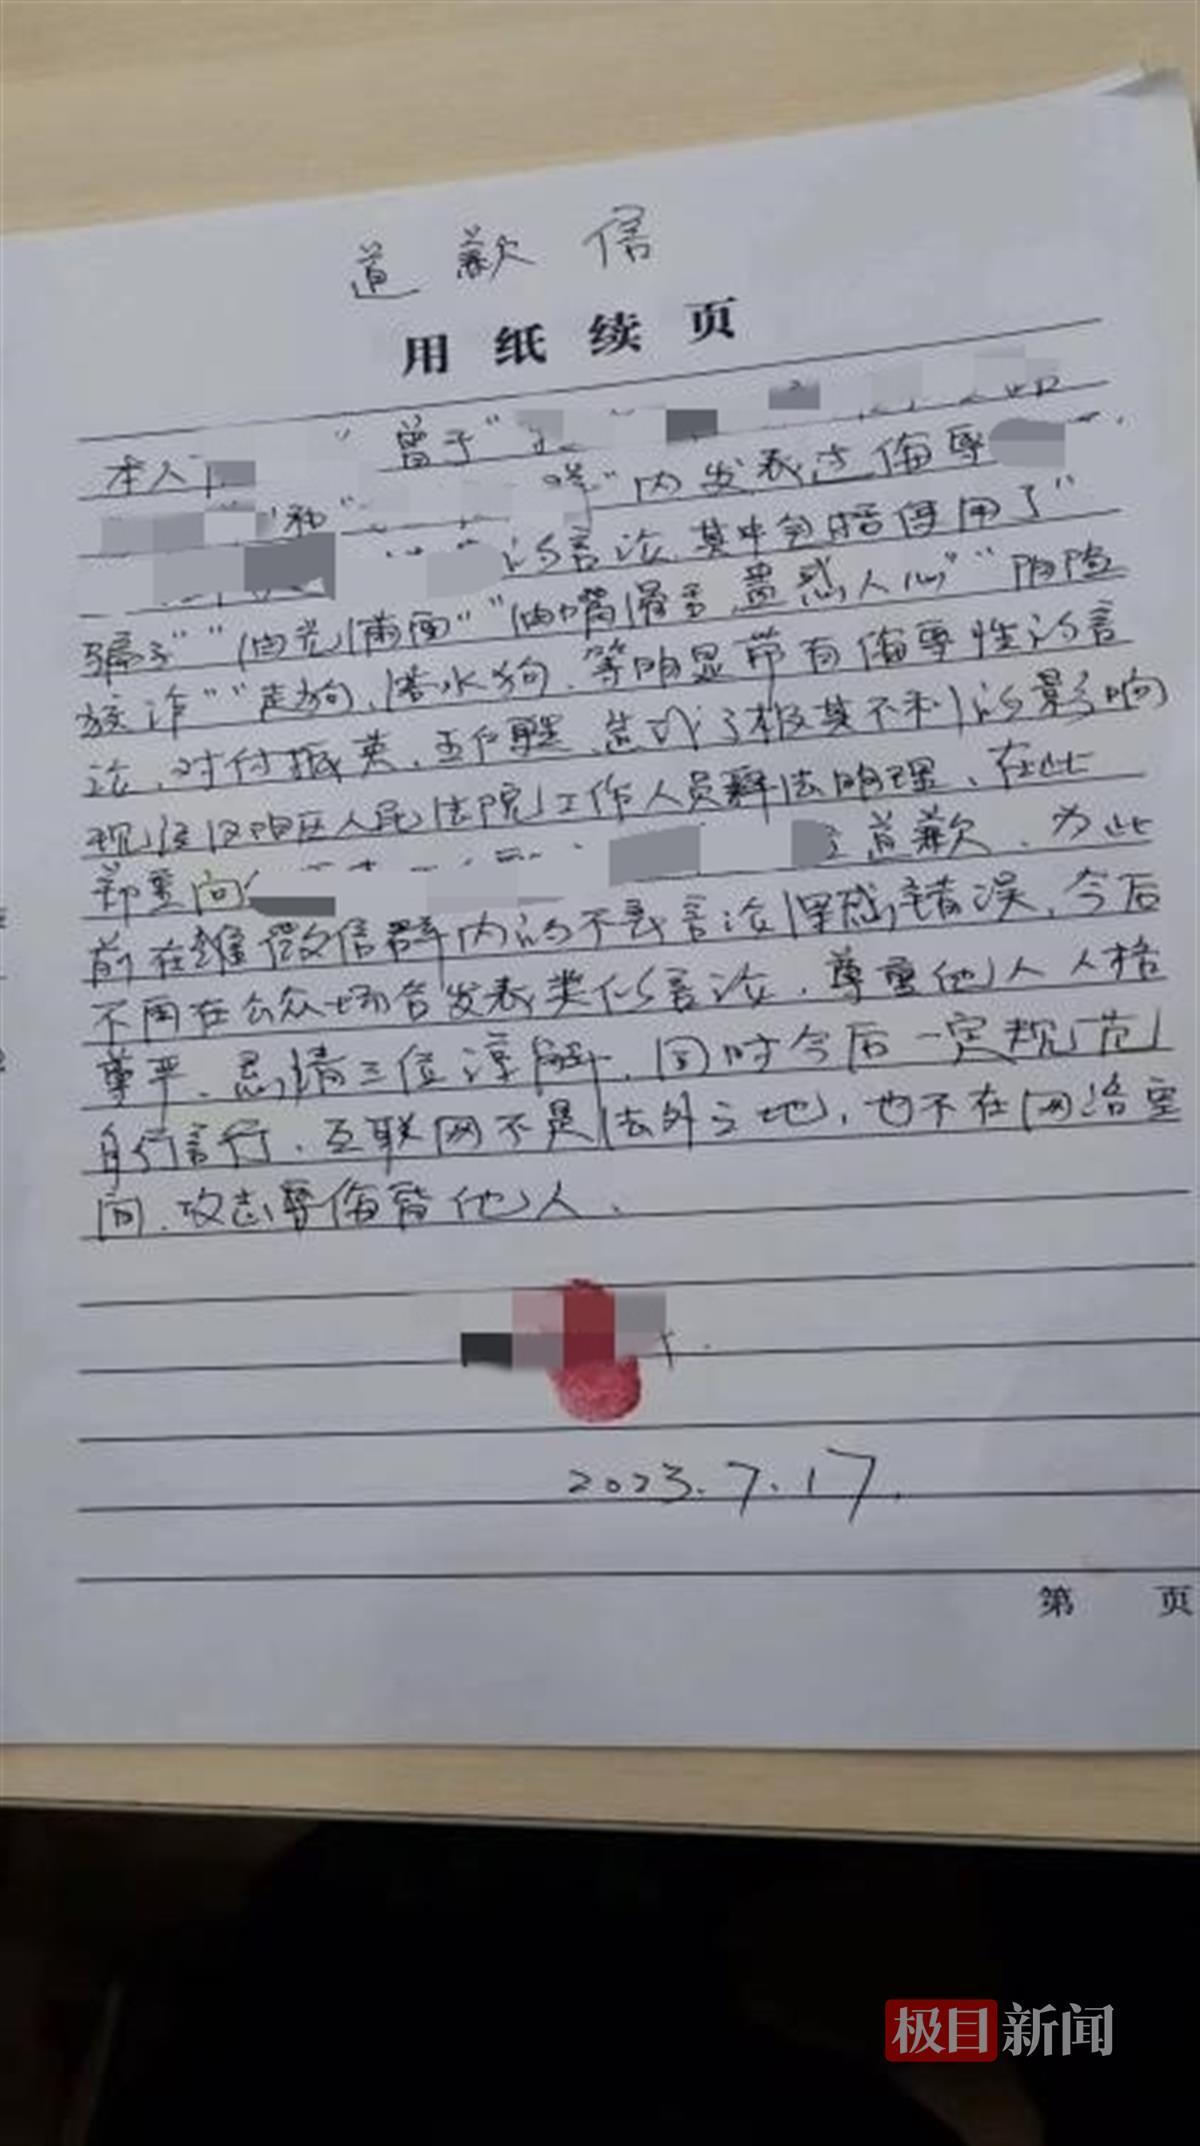 道歉信
用纸续页
本人 曾于"
和" 群"内发表过侮辱
的言论,其中包括使用了"
骗子""油光满面""油嘴滑舌,蛊惑人心""阴险
狡诈""走狗,落水狗,等明显带有侮辱性的言
论,对付 造成了极其不利的影响
现经汉阳区人民法院工作人员释法明理,在此
郑重向 道歉,为此
前在 微信群内的不当言论深感错误,今后
不再在公众场合发表类似言论,尊重他人人格
尊严,恳请三位谅解,同时今后一定规范
自行言行,互联网不是法外之地,也不在网络空
间,攻击 侮 他人.
2023.7.17.
第 页
极目新闻